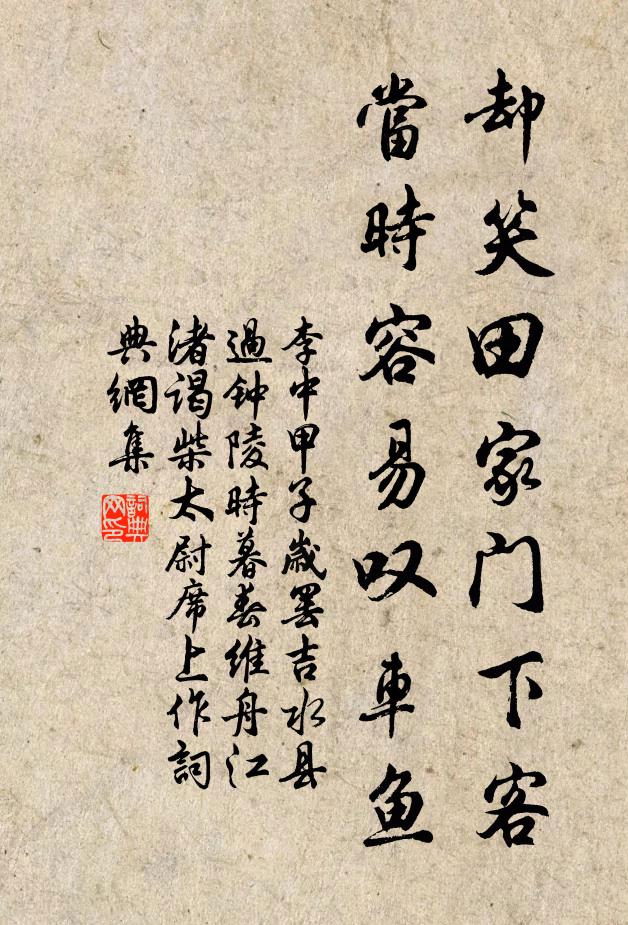 却笑田家门下客
當時容易叹車鱼
李中甲子歲罢吉水县
過钟陵時暮春維舟江
渚谒柴太尉席上作詞
典網集
詞典
网印